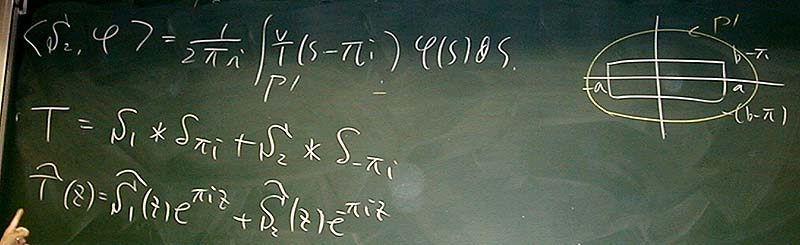 ⟨S₂, φ⟩ = 1/2πi ∫_P' Ť(s-πi) φ(s) ds.
T = S₁ * δ_πi + S₂ * δ_-πi
T̂(z) = Ŝ₁(z)e^πiz + Ŝ₂(z)e^-πiz
P'
b-π
-a a
-(b-π)